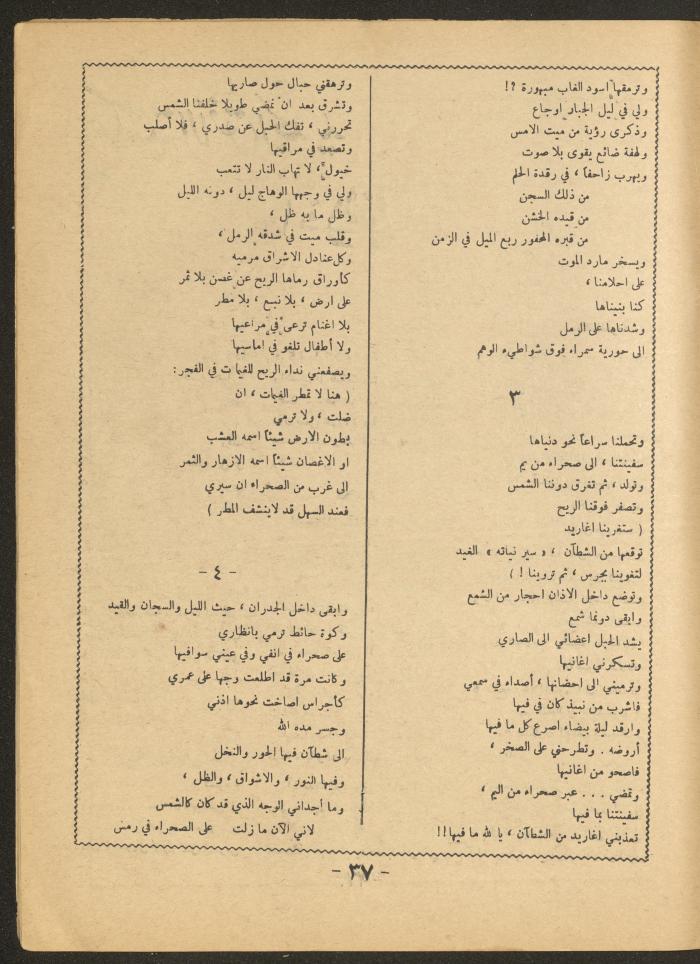 وترمقها اسود الغاب مبهورة ?!
ولي في ليل الجبار اوجاع
وذكرى رؤية من ميت الامس
ولهفة ضائع يقوى بلا صوت
ويهرب زاحفاً ، في رقدة الحلم
من ذلك السجن
من قيده الخشن
من قبره المحفور ربع الميل في الزمن
ويسخر مارد الموت
على احلامنا ،
كنا بنيناها
وشدناها على الرمل
الى حورية سمراء فوق شواطيء الوهم
٣
وتحملنا سراعاً نحو دنياها
سفينتنا ، الى صحراء من يم
وتولد ، ثم تغرق دوننا الشمس
وتصفر فوقنا الريح
( ستغرينا اغاريد
توقعها من الشطآن ، « سير نياته » الغيد
لتغوينا بجرس ، ثم تروينا ! )
وتوضع داخل الاذان احجار من الشمع
وابقى دونما شمع
يشد الحبل اعضائي الى الصاري
وتسكرني اغانيها
وترميني الى احضانها ، أصداء في سمعي
فاشرب من نبيذ كان في فيها
وارقد ليلة بيضاء اصرع كل ما فيها
أروضه . وتطرحني على الصخر ،
فاصحو من اغانيها
وتمضي . . . عبر صحراء من اليم ،
سفينتنا بما فيها
تعذبني اغاريد من الشطآن ، يا لله ما فيها!!
وترهقني حبال حول صاريها
وتشرق بعد ان تمضي طويلا خلفنا الشمس
تحررني ، تفك الحبل عن صدري ، فلا أصلب
وتصعد في مراقيها
خيول ، لا تهاب النار لا تتعب
ولي في وجهها الوهاج ليل ، دونه الليل
وظل ما به ظل ،
وقلب ميت في شدقه الرمل ،
وكل عنادل الاشراق مرميه
كأوراق رماها الريح عن غصن بلا ثمر
على ارض ، بلا نبع ، بلا مطر
بلا اغنام ترعى في مراعيها
ولا أطفال تلغو في اماسيها
ويصفعني نداء الريح للغيمات في الفجر:
( هنا لا تمطر الغيمات ، ان
ضلت ، ولا ترمي
بطون الارض شيئاً اسمه العشب
او الاغصان شيئاً اسمه الازهار والثمر
الى غرب من الصحراء ان سيري
فعند السهل قد لا ينشف المطر )
- ٤ -
وابقى داخل الجدران ، حيث الليل والسجان والقيد
وكوة حائط ترمي بانظاري
على صحراء في انفي وفي عيني سوافيها
وكانت مرة قد اطلعت وجها على عمري
كأجراس اصاخت نحوها اذني
وجسر مده الله
الى شطآن فيها الحور والنخل
وفيها النور ، والاشواق ، والظل ،
وما أجداني الوجه الذي قد كان كالشمس
لاني الآن ما زلت على الصحراء في رمس
- ٣٧ -